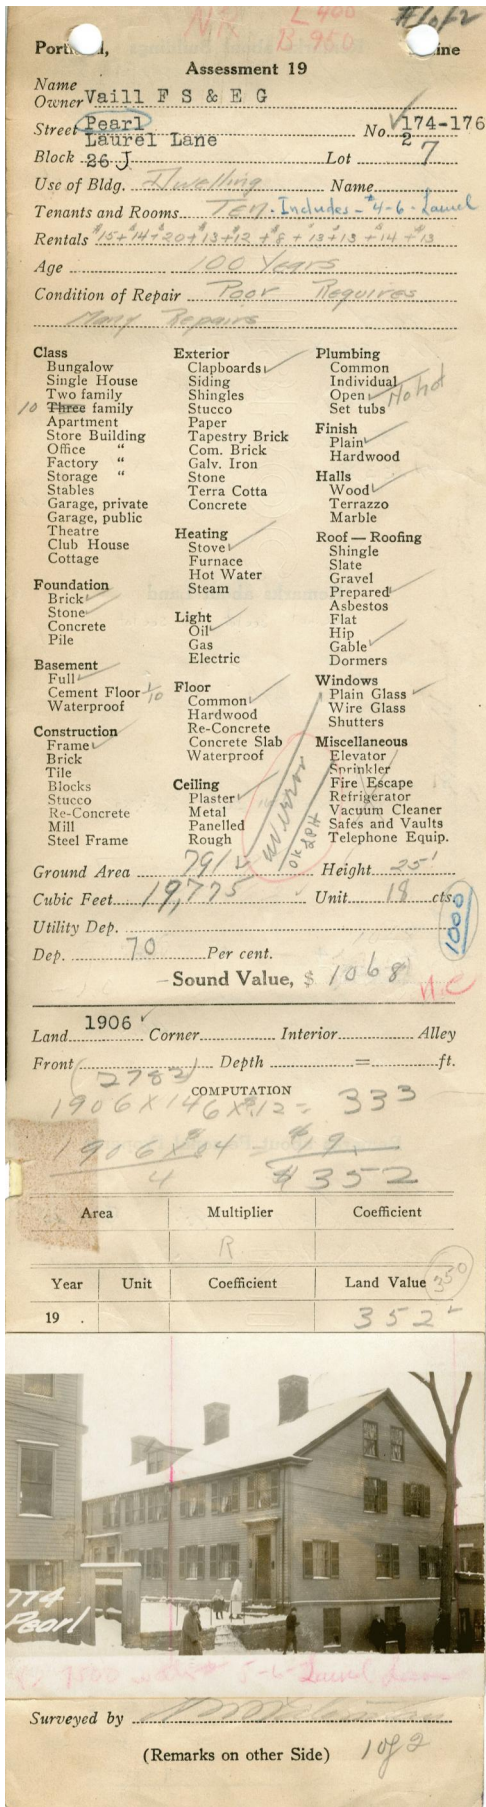 L 400 #1 of 2
B 950
Portland, Maine
Assessment 19
Name
Owner Vaill F S & E G
Street Pearl No. 174-176
Laurel Lane 2
Block 26 J Lot 7
Use of Bldg. Dwelling Name
Tenants and Rooms Ten. Includes - #4-6- Laurel
Rentals $15+$14+$20+$13+$12+$8+$13+$13+$14+$13
Age 100 Years
Condition of Repair Poor Requires
Many Repairs
Class
Bungalow
Single House
Two family
10 Three family
Apartment
Store Building
Office "
Factory "
Storage "
Stables
Garage, private
Garage, public
Theatre
Club House
Cottage
Foundation
Brick ✓
Stone ✓
Concrete
Pile
Basement
Full ✓
Cement Floor 1/10
Waterproof
Construction
Frame ✓
Brick
Tile
Blocks
Stucco
Re-Concrete
Mill
Steel Frame
Exterior
Clapboards ✓
Siding
Shingles
Stucco
Paper
Tapestry Brick
Com. Brick
Galv. Iron
Stone
Terra Cotta
Concrete
Heating
Stove ✓
Furnace
Hot Water
Steam
Light
Oil ✓
Gas
Electric
Floor
Common ✓
Hardwood
Re-Concrete
Concrete Slab
Waterproof
Ceiling
Plaster ✓
Metal
Panelled
Rough
Plumbing
Common
Individual
Open ✓ No hot
Set tubs
Finish
Plain ✓
Hardwood
Halls
Wood ✓
Terrazzo
Marble
Roof — Roofing
Shingle
Slate
Gravel
Prepared ✓
Asbestos
Flat
Hip
Gable ✓
Dormers
Windows
Plain Glass ✓
Wire Glass
Shutters
Miscellaneous
Elevator
Sprinkler
Fire Escape
Refrigerator
Vacuum Cleaner
Safes and Vaults
Telephone Equip.
error
Ground Area 791 ✓ Height 25'
Cubic Feet 19,775 Unit 18 cts.
Utility Dep. 1000
Dep. 70 Per cent.
Sound Value, $ 1068
N.C
Land 1906 ✓ Corner Interior Alley
Front (2782) Depth = ft.
COMPUTATION
1906 X 146 X $.12 = 333
1906 X $04 = $19.
4 $352
Area Multiplier Coefficient
R
Year Unit Coefficient Land Value 350
19 . 352 ✓
774
Pearl
Surveyed by
(Remarks on other Side) 1 of 2